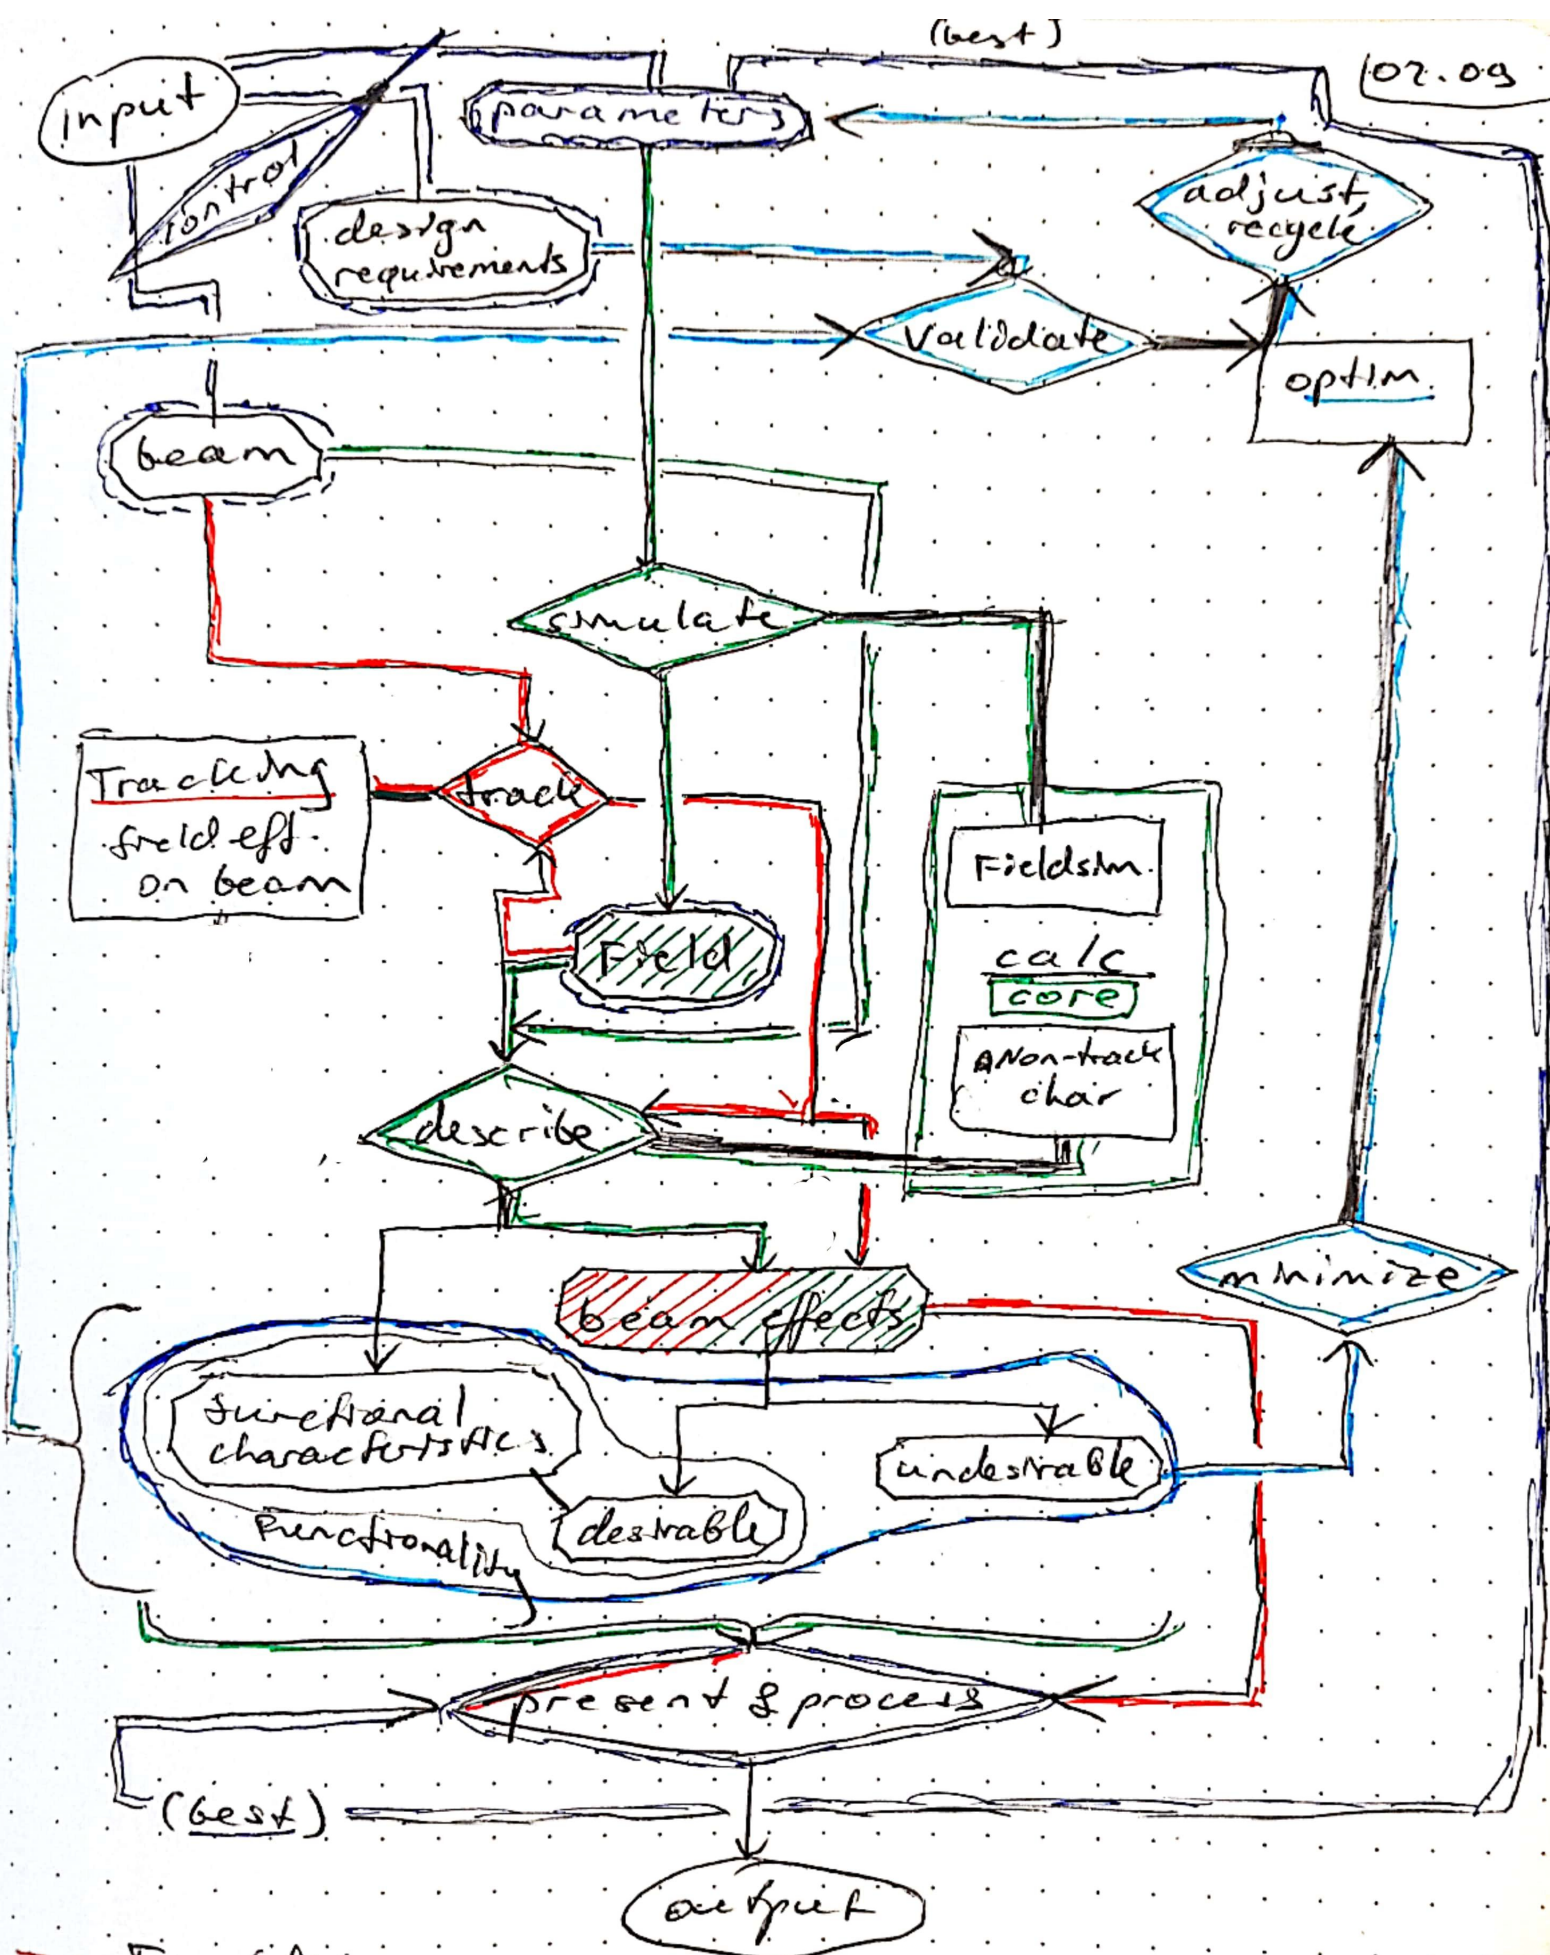 (best)
02.09
input
parameters
control
adjust,
recycle
design
requirements
validate
optim.
beam
simulate
Tracking
field eff.
on beam
track
Fieldsim.
Field
calc
core
Non-track
char
describe
minimize
beam effects
functional
characteristics
undesirable
desirable
Functionality
present & process
(best)
output